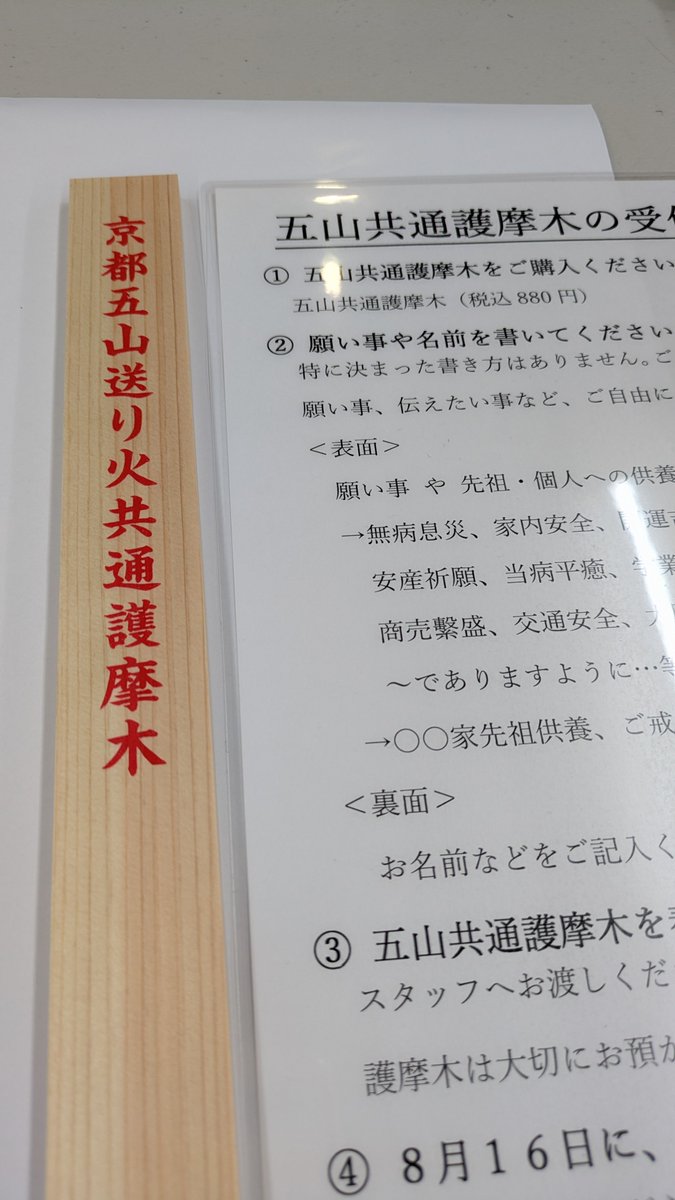 京都五山送り火共通護摩木
五山共通護摩木の受
① 五山共通護摩木をご購入ください
五山共通護摩木(税込880円)
② 願い事や名前を書いてください
特に決まった書き方はありません。ご
願い事、伝えたい事など、ご自由に
<表面>
願い事 や 先祖・個人への供養
→無病息災、家内安全、開運
安産祈願、当病平癒、学業
商売繫盛、交通安全、
~でありますように…等
→〇〇家先祖供養、ご戒
<裏面>
お名前などをご記入く
③ 五山共通護摩木を
スタッフへお渡しくだ
護摩木は大切にお預か
④ 8月16日に、